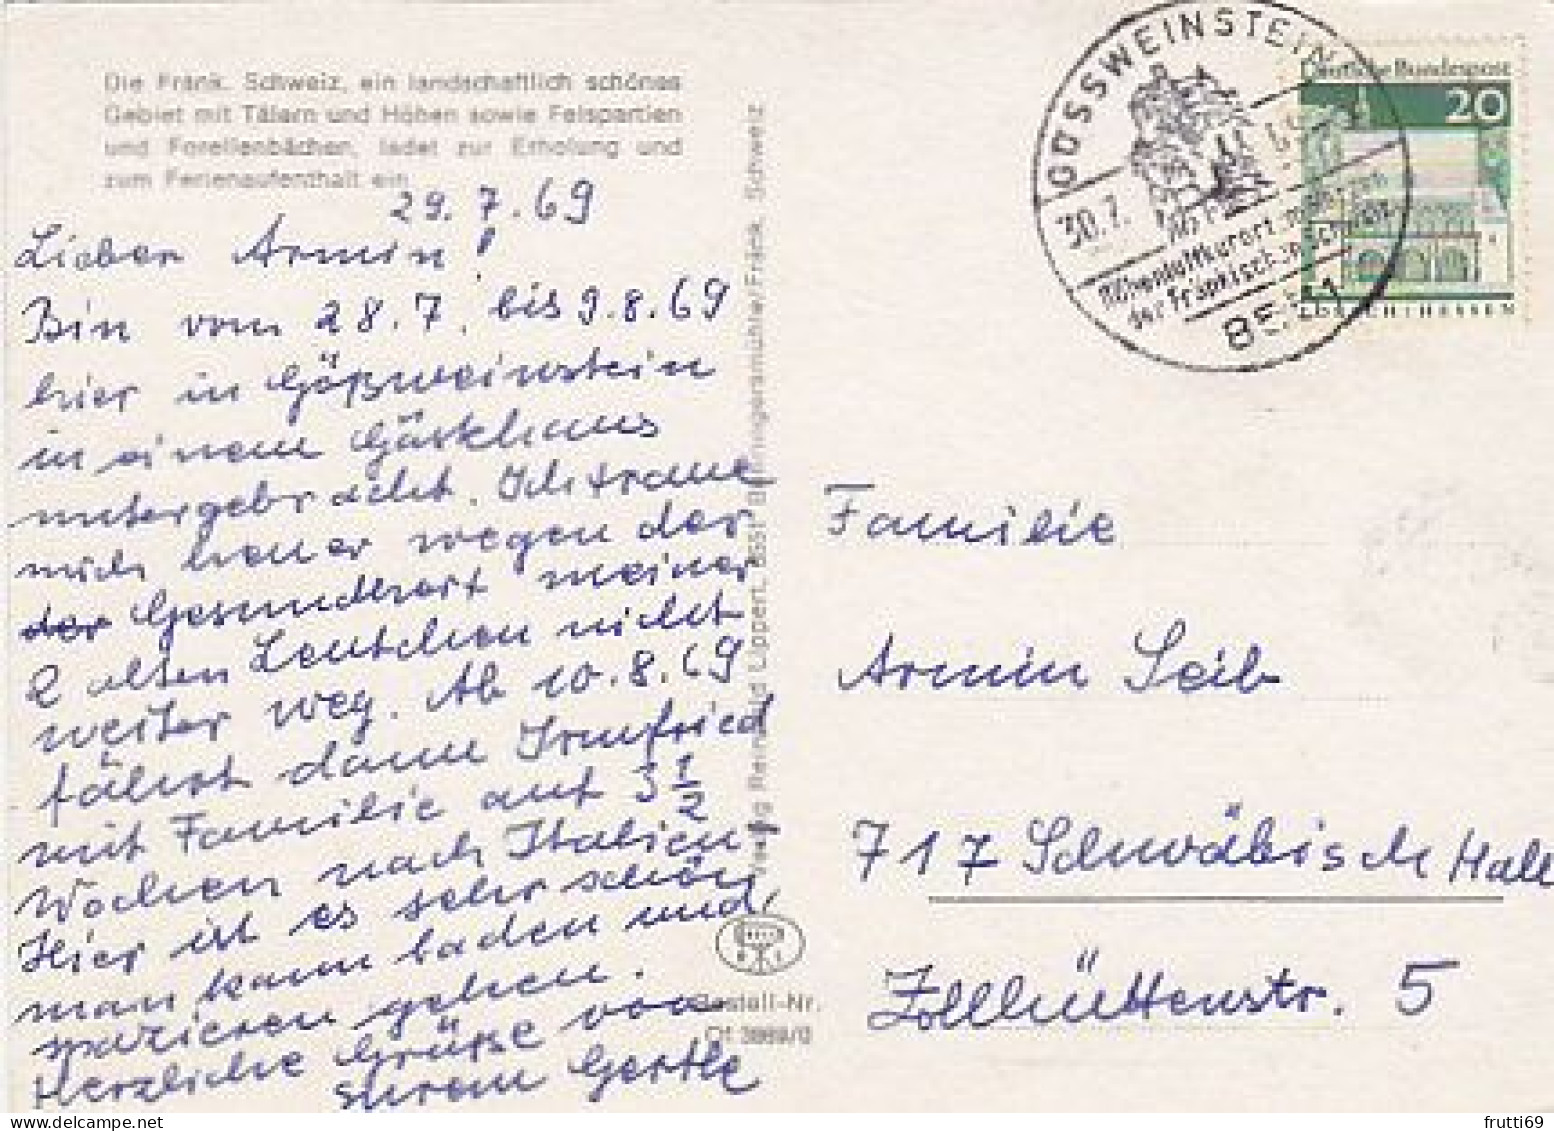 Die Fränk. Schweiz, ein landschaftlich schönes
Gebiet mit Tälern und Höhen sowie Felspartien
und Forellenbächen, ladet zur Erholung und
zum Ferienaufenthalt ein
29.7.69
Lieber Armin!
Bin vom 28.7. bis 9.8.69
hier in Gößweinstein
in einem Gästehaus
untergebracht. Ich traue
mich heuer wegen der
der Gesundheit meiner
2 alten Leutchen nicht
weiter weg. Ab 10.8.69
fährt dann Irmfried
mit Familie auf 3 1/2
Wochen nach Italien,
Hier ist es sehr schön
man kann baden und
spazieren gehen.
Herzliche Grüße von
Euren
Verlag Reinhold Lippert, 8551 Behringersmühle/Fränk. Schweiz
Bestell-Nr.
3969/0
GÖSSWEINSTEIN
30.7.69
Höhenluftkurort im Herzen
der Fränkischen Schweiz
8551
Deutsche Bundespost
20
LORSCH/HESSEN
Familie
Armin Seib
717 Schwäbisch Hall
Zollhüttenstr. 5
frutti69